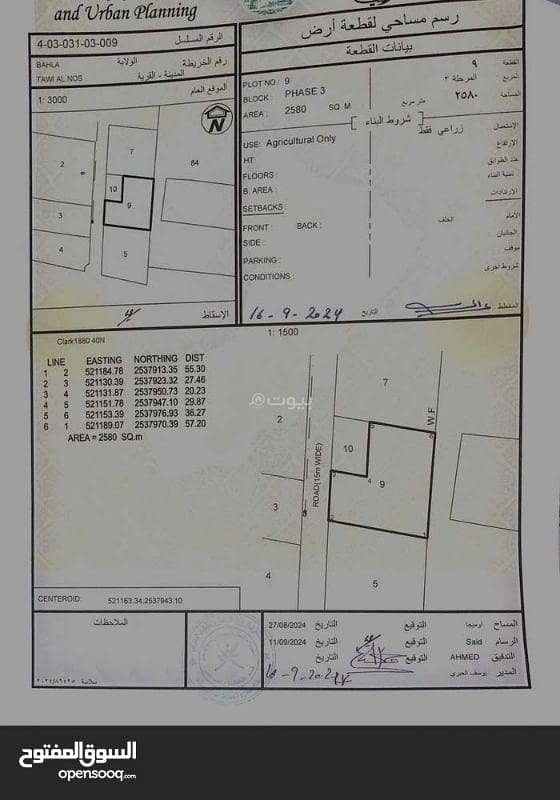 and Urban Planning
4-03-031-03-009 الرقم المسلسل
BAHLA الولاية رقم الخريطة
TAWI AL NOS المدينة - القرية
1: 3000 الموقع العام
N
2 7 84
10 9
3
4 5
الاسقاط
رسم مساحي لقطعة أرض
بيانات القطعة
PLOT NO : 9 ٩ القطعة
BLOCK : PHASE 3 المرحلة ٣ المربع
AREA : 2580 SQ. M متر مربع ٢٥٨٠ المساحة
شروط البناء
USE: Agricultural Only زراعي فقط الإستعمال
HT: الإرتفاع
FLOORS : عدد الطوابق
B. AREA : نسبة البناء
SETBACKS : الارتدادات
FRONT : BACK : الخلف الأمام
SIDE : الجانبان
PARKING : موقف
CONDITIONS : شروط اخرى
16-9-2024 التاريخ المخطط
Clark1880 40N
1: 1500
LINE EASTING NORTHING DIST
1 2 521184.78 2537913.35 55.30
2 3 521130.39 2537923.32 27.46
3 4 521131.87 2537950.73 20.23
4 5 521151.78 2537947.10 29.87
5 6 521153.39 2537976.93 36.27
6 1 521189.07 2537970.39 57.20
AREA = 2580 SQ.m
بيوت
7
W.F
2
ROAD(15m WIDE)
10
9
3
4
5
CENTEROID: 521163.34,2537943.10
الملاحظات
27/08/2024 التاريخ التوقيع اوميجا المساح
11/09/2024 التاريخ التوقيع Said الرسام
التاريخ التوقيع AHMED التدقيق
16-9-2024 يوسف العبري المدير
السوق المفتوح
opensooq.com